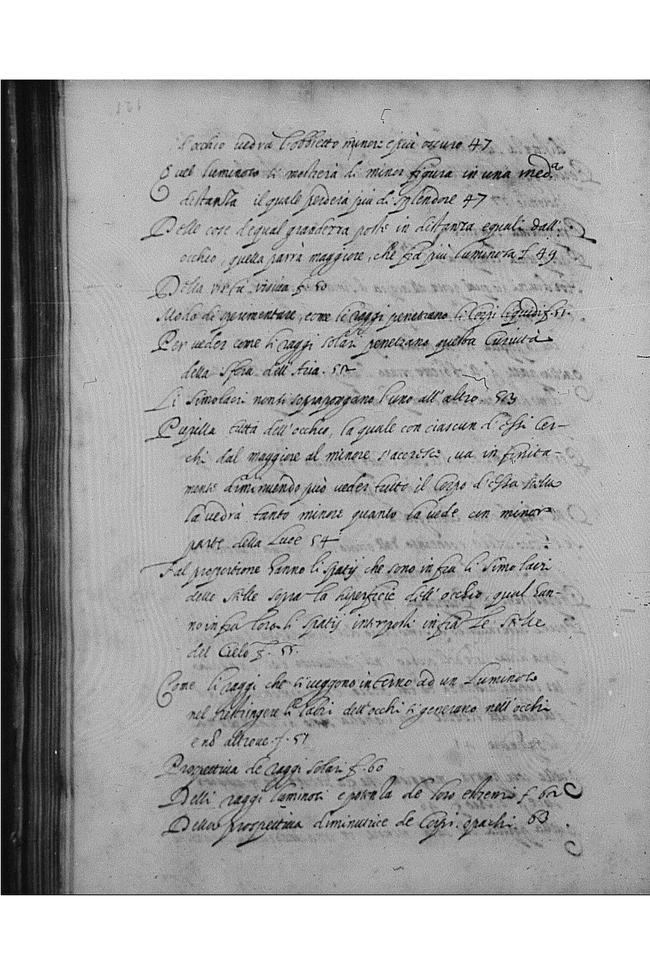 l'occhio vedrà l'obbietto minore e più oscuro 47
Quel luminoso si mostrerà di minor figura in una med.ª
distanza il quale perderà più di splendore 47
Delle cose d'equal grandezza poste in distanza equale dall'
occhio, quella parrà maggiore, che fia più luminosa f. 49
Della virtù visiva f. 50
Modo di sperimentare, come li raggi penetrano li corpi liquidi f. 51.
Per veder come li raggi solari penetrano questa curvità
della sfera dell'Aria. 52
Li simolacri non si soprapongano l'uno all'altro. 53
Pupilla tutta dell'occhio, la quale con ciascun d'essi cer-
chi dal maggiore al minore s'acresce, va infinita-
mente diminuendo può veder tutto il corpo d'essa stella
la vedrà tanto minore quanto la vede con minor
parte della luce 54
Tal proportione hanno li spatij che sono infra li simolacri
delle stelle sopra la superficie dell'occhio, qual han-
no infra loro li spatij interposti infra le stelle
del Cielo f. 55.
Come li raggi che si veggono intorno ad un luminoso
nel restringere li labri dell'occhi si generano nell'occhi
e nõ altrove f. 57
Prospettiva de raggi solari f. 60
Delli raggi luminosi e potentia de loro estremi f. 62
Della prospettiva diminutrice de corpi opachi 63